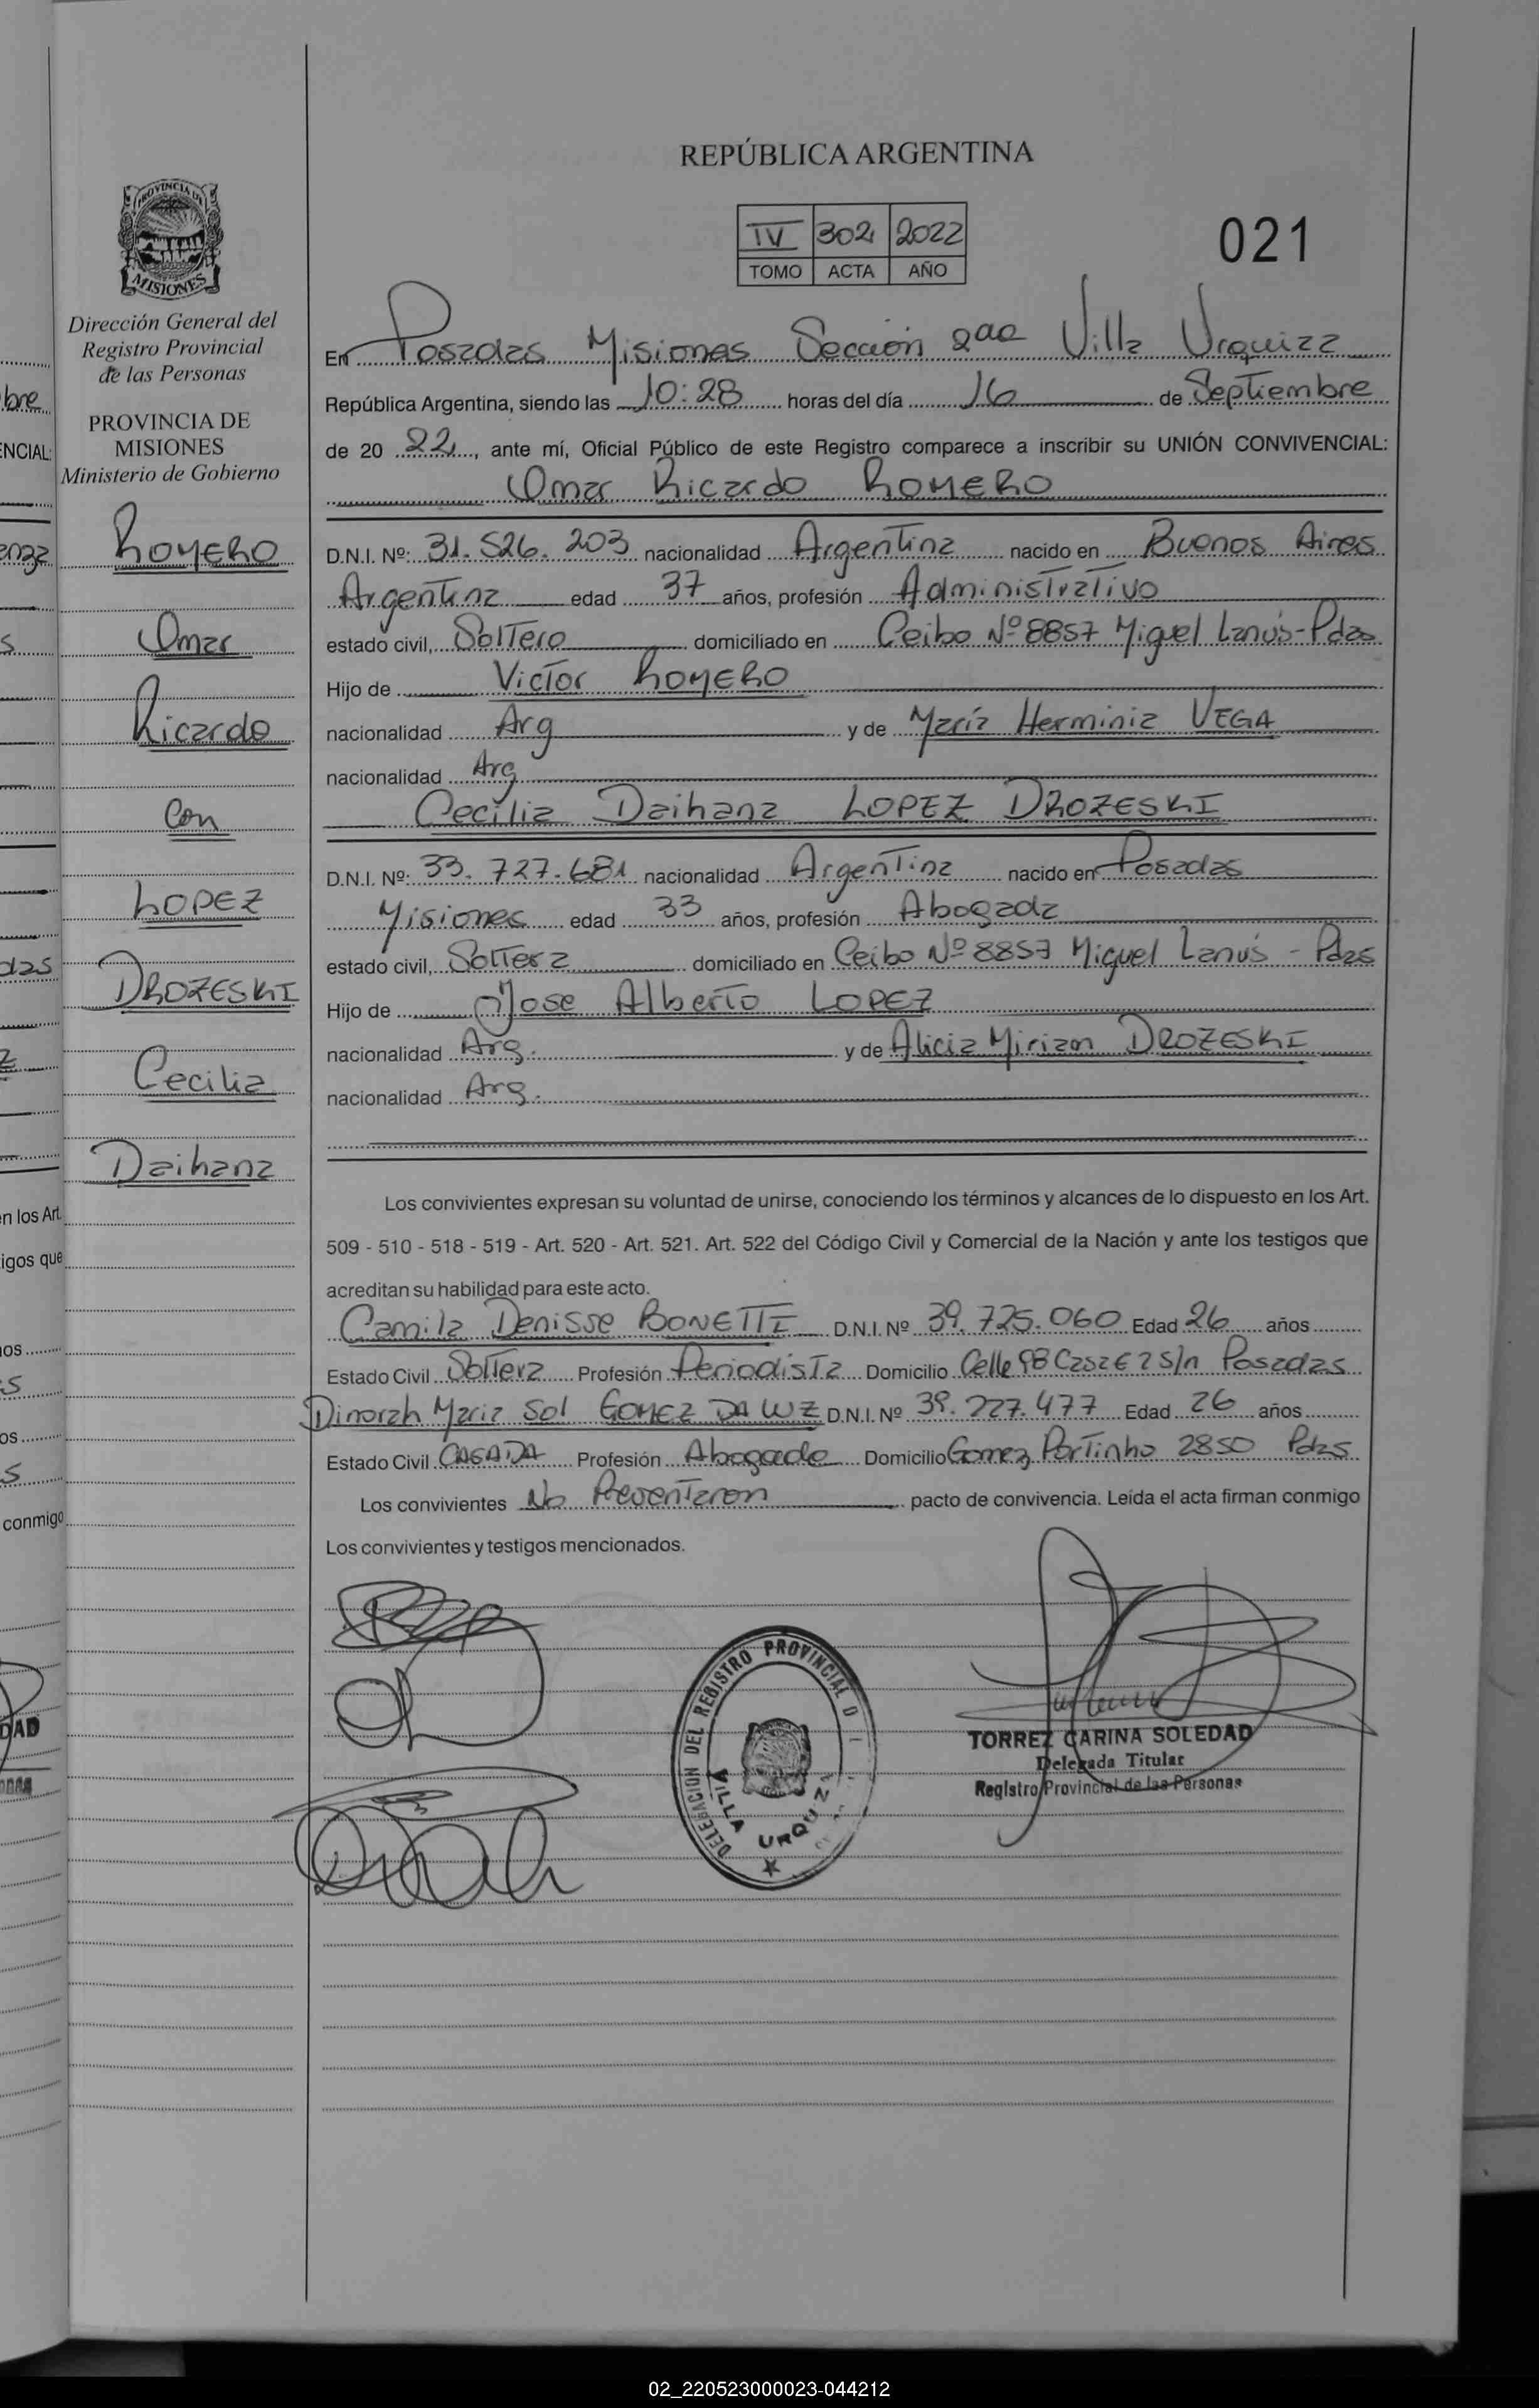 REPÚBLICA ARGENTINA
IV 302 2022
TOMO ACTA AÑO
021
PROVINCIA DE
MISIONES
Dirección General del
Registro Provincial
de las Personas
PROVINCIA DE
MISIONES
Ministerio de Gobierno
ROMERO
Omar
Ricardo
Con
LOPEZ
DROZESKI
Cecilia
Daihana
En Posadas Misiones Sección 2da Villa Urquiza
República Argentina, siendo las 10:28 horas del día 16 de Septiembre
de 20 22, ante mí, Oficial Público de este Registro comparece a inscribir su UNIÓN CONVIVENCIAL:
Omar Ricardo ROMERO
D.N.I. Nº: 31.526.203 nacionalidad Argentina nacido en Buenos Aires
Argentina edad 37 años, profesión Administrativo
estado civil, Soltero domiciliado en Ceibo Nº 8857 Miguel Lanús - Pdas
Hijo de Victor ROMERO
nacionalidad Arg y de María Herminia VEGA
nacionalidad Arg
Cecilia Daihana LOPEZ DROZESKI
D.N.I. Nº: 33.727.681 nacionalidad Argentina nacido en Posadas
Misiones edad 33 años, profesión Abogada
estado civil, Soltera domiciliado en Ceibo Nº 8857 Miguel Lanús - Pdas
Hijo de Jose Alberto LOPEZ
nacionalidad Arg. y de Alicia Miriam DROZESKI
nacionalidad Arg.
Los convivientes expresan su voluntad de unirse, conociendo los términos y alcances de lo dispuesto en los Art.
509 - 510 - 518 - 519 - Art. 520 - Art. 521. Art. 522 del Código Civil y Comercial de la Nación y ante los testigos que
acreditan su habilidad para este acto.
Camila Denisse BONETTI D.N.I. Nº 39.725.060 Edad 26 años
Estado Civil Soltera Profesión Periodista Domicilio Calle 98 Casa S/n Posadas
Dinorah Maria Sol GOMEZ DA LUZ D.N.I. Nº 39.227.477 Edad 26 años
Estado Civil CASADA Profesión Abogada Domicilio Gomez Portinho 2850 Pdas
Los convivientes No Presentaron pacto de convivencia. Leída el acta firman conmigo
Los convivientes y testigos mencionados.
DELEGACION DEL REGISTRO PROVINCIAL D
VILLA URQUIZA
TORREZ CARINA SOLEDAD
Delegada Titular
Registro Provincial de las Personas
02_220523000023-044212